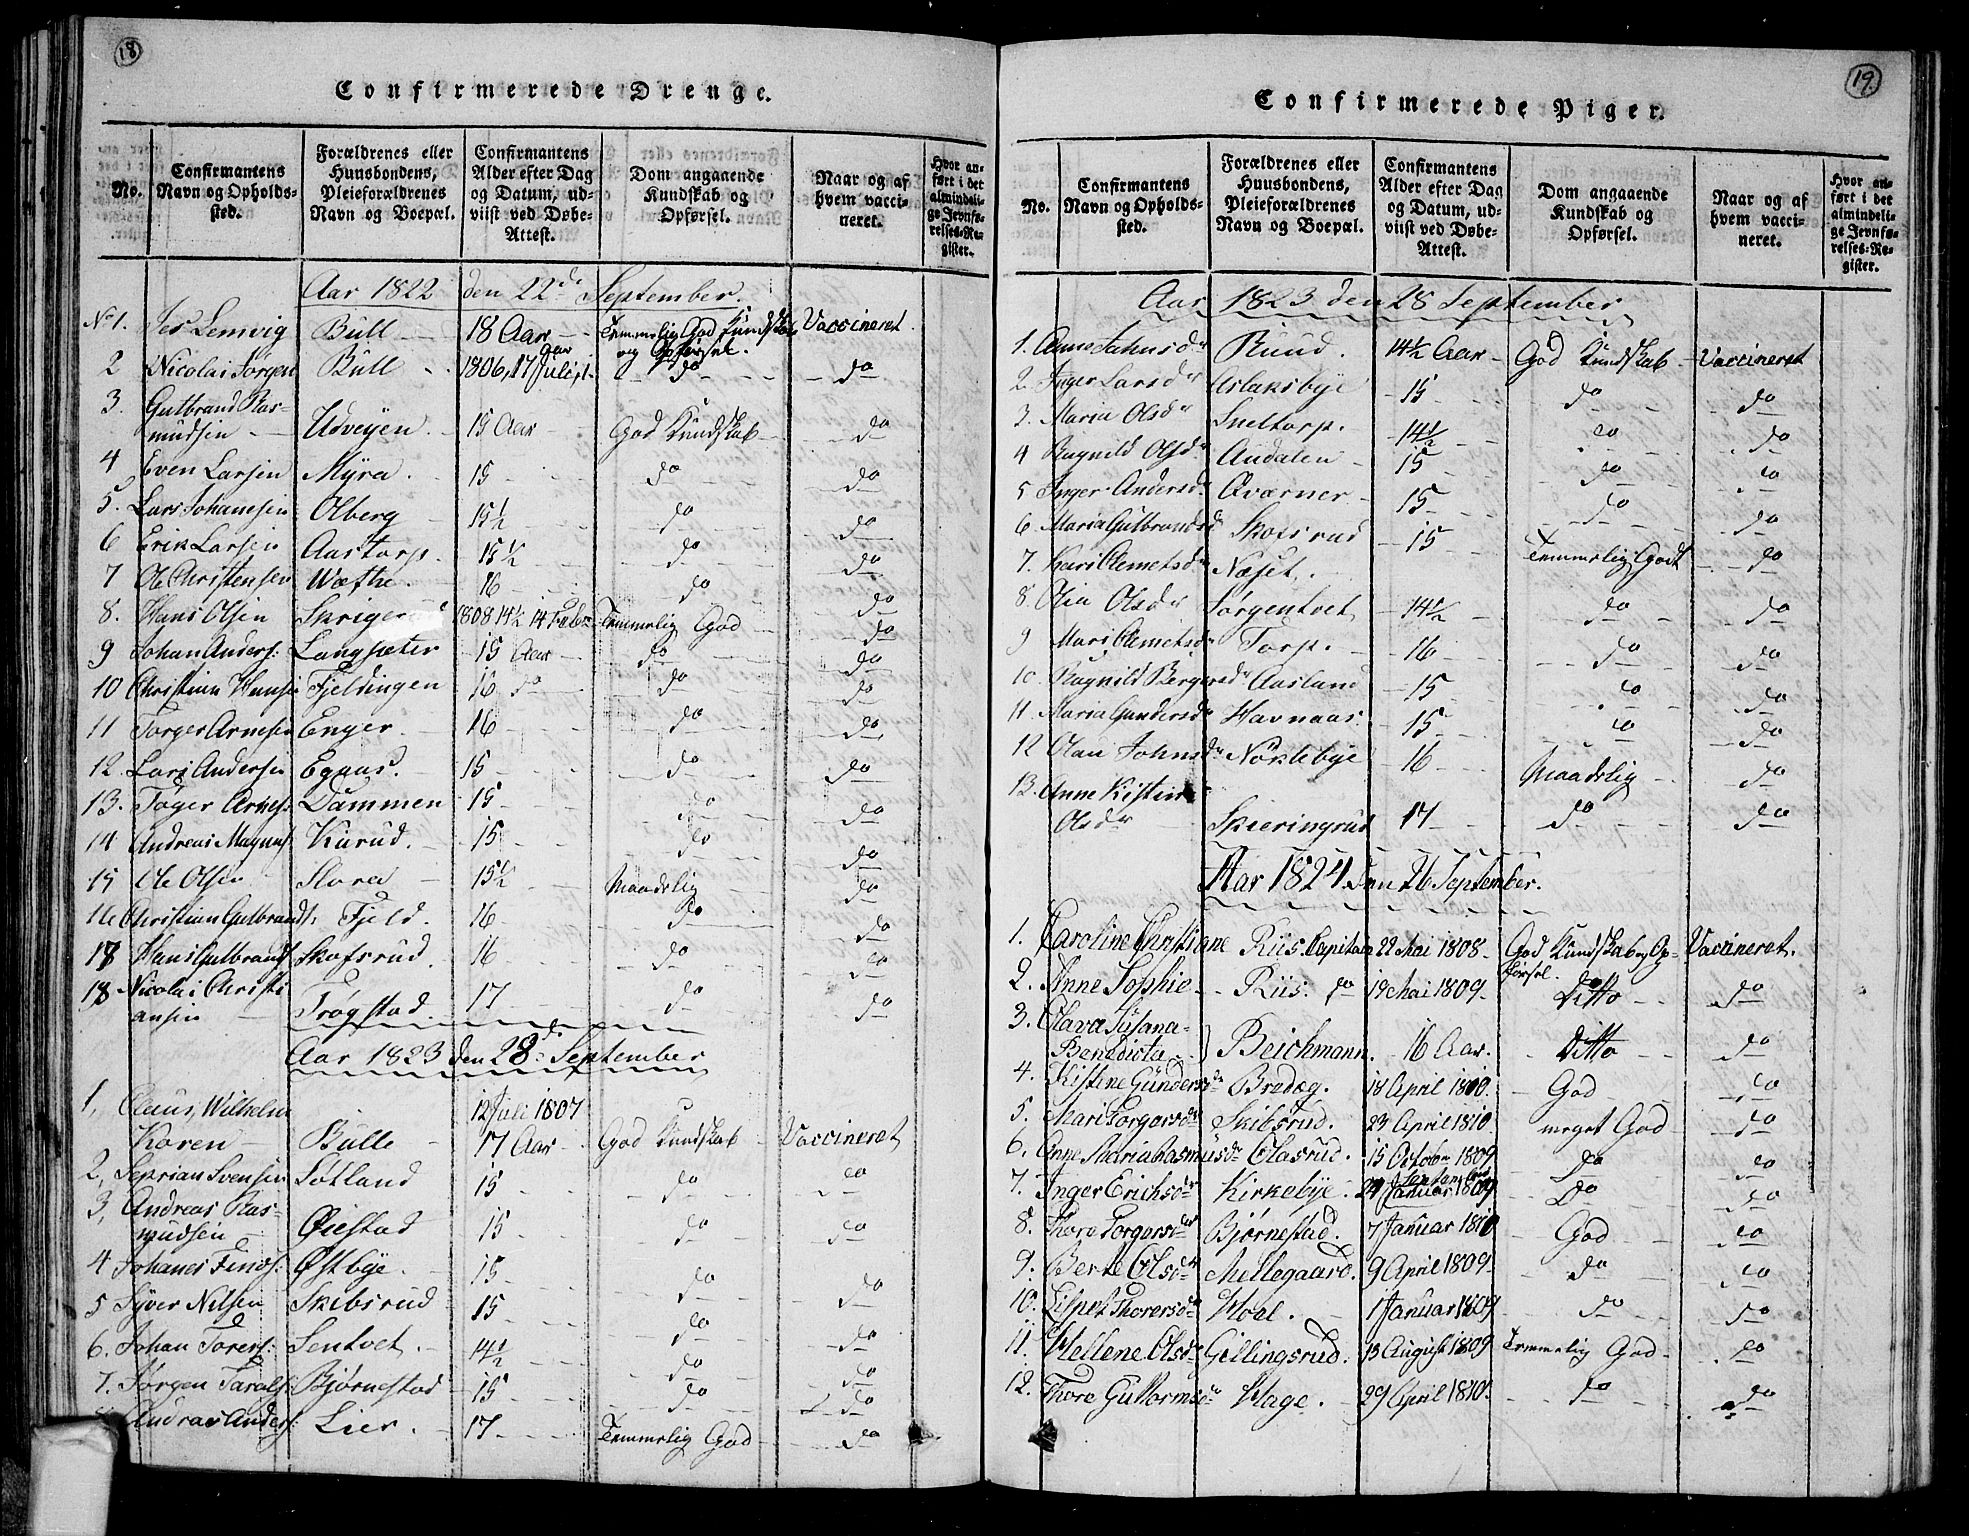 18
Confirmerede Drenge.
No. | Confirmantens Navn og Opholdssted. | Forældrenes eller Huusbondens, Pleieforældrenes Navn og Boepæl. | Confirmantens Alder efter Dag og Datum, udviist ved Døbe-Attest. | Dom angaaende Kundskab og Opførsel. | Naar og af hvem vaccineret. | Hvor anført i det almindelige Jevnførelses-Register.
Aar 1822 den 22de September.
No 1. Jes Lemvig | Bull | 18 Aar | Temmelig God Kundskab og Opførsel. | Vaccineret
2 Nicolai Jørgen | Bull | 1806, 17 Juli, | do | do
3. Gulbrand Rasmudsen | Udveyen | 15 Aar | God Kundskab | do
4 Even Larsen | Myra | 15 | do | do
5. Lars Johanesen | Olberg | 15½ | do | do
6 Erik Larsen | Aastorp | 15½ | do | do
7 Ole Christensen | Wæthe | 16 | do | do
8. Hans Olsen | 1808 14½ 14 Febr | Temmelig God | do
9 Johan Anders: | Langsæter | 15 Aar | do | do
10 Christian Hansen | Fjeldingen | 16 do | do | do
11 Torger Arnesen | Enger | 16 | do | do
12 Lars Andersen | Egaas. | 15 | do | do
13. Tøger Arnes: | Dammen | 15 | do | do
14 Andreas Magnus: | Karud. | 15 | do | do
15 Ole Olsen | Slora | 15½ | Maadelig | do
16 Christian Gulbrands: | Fjeld. | 16 | do | do
17 Hans Gulbrands: | Skofsrud | 16 | do | do
18 Nicolai Christiansen | Trøgstad. | 17 | do | do
Aar 1823 den 28de September
1, Claus, Wilhelm Koren | Bulle | 12 Juli 1807 17 Aar | God Kundskab | Vaccineret
2, Seprian Svensen | Søtland | 15 | do | do
3, Andreas Rasmudsen | Øiestad | 15 | do | do
4 Johanes Finds: | Østbye. | 15 | do | do
5 Syver Nilsen | Skibsrud | 15 | do | do
6. Johan Torers: | Sentvet. | 14½ | do | do
7. Jørgen Taralds: | Bjørnestad | 15 | do | do
Andreas Anders: | Lier | 17 | Temmelig God | do
19.
Confirmerede Piger.
No. | Confirmantens Navn og Opholdssted. | Forældrenes eller Huusbondens, Pleieforældrenes Navn og Boepæl. | Confirmantens Alder efter Dag og Datum, udviist ved Døbe-Attest. | Dom angaaende Kundskab og Opførsel. | Naar og af hvem vaccineret. | Hvor anført i det almindelige Jevnførelses-Register.
Aar 1823 den 28 September
1. Anne Jahnsdr | Ruud. | 14½ Aar | God Kundskab | Vaccineret
2. Inger Larsdr | Aslaksbye | 15 | do | do
3. Maria Olsdr | Sneltorp. | 14½ | do | do
4 Ragnild Olsdr | Audalen | 15 | do | do
5 Inger Andersdr | Qværner | 15 | do | do
6 Maria Gulbrandsdr | Skofsrud | 15 | Temmelig Godt | do
7. Kari Clemetsdr | Næset,
8. Olia Olsdr | Jørgentvet | 14½ | do | do
9 Mari Clemetsdr | Torp. | 16 | do | do
10. Ragnild Bergersdr | Aasland | 15 | do | do
11. Maria Gundersdr | Havnaas | 15 | do | do
12 Olau Johnsdr | Nöklebye | 16 | Maadelig | do
13. Anne Kistine Olsdr | Skieringrud | 17 | do | do
Aar 1824 den 26 September.
1. Caroline Christiane | Riis. Capitain | 22 Mai 1808. | God Kundskab og Opførsel. | Vaccineret.
2. Anne Sophie | Riis. do | 19 Mai 1809. | Ditto | do
3. Clava Susana Benedicta | Beichmann. | 16 Aar. | Ditto | do
4. Kistene Gündersdr | Bredeg. | 18 April 1810. | God | do
5. Mari Torgersdr | Skibsrud. | 23 April 1810 | meget God | do
6. Anne Maria Rasmusdr | Olasrud. | 15 Octobr 1809 | do | do
7. Inger Erichsdr | Kirkebye. | 24 Januar 1809 | Do | do
8. Thore Torgersdr | Bjørnestad. | 7 Januar 1810 | God | do
9. Berte Olsdr | Mellegaard. | 9 April 1809. | do | do
10. Lispet Thorersdr | Hoel. | 1 Januar 1809 | do | do
11. Hellene Olsdr | Gillingsrud. | 13 August 1809 | Temmelig God | do
12. Thore Guttormsdr | Hage. | 29 April 1810. | do | do